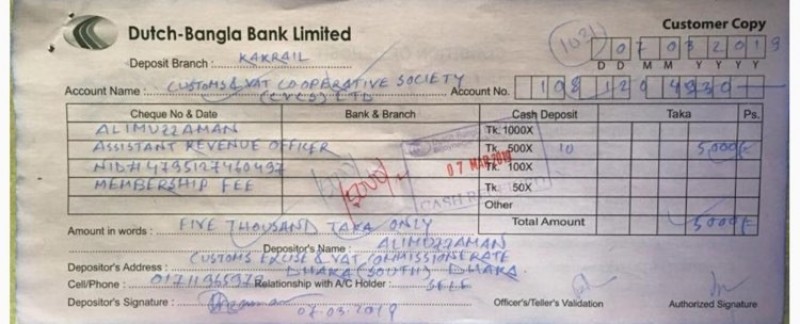 Customer Copy
Dutch-Bangla Bank Limited
(1021)
07 03 2019
D D M M Y Y Y Y
Deposit Branch : KAKRAIL
Account Name : CUSTOMS & VAT CO-OPERATIVE SOCIETY (CVCS) LTD
Account No. 108 120 4930
Cheque No & Date Bank & Branch Cash Deposit Taka Ps.
ALIMUZZAMAN Tk. 1000X
ASSISTANT REVENUE OFFICER Tk. 500X 10 5000/-
NID# 4795127460497 Tk. 100X
MEMBERSHIP FEE Tk. 50X
07 MAR 2019
CASH
5000/-
Other
Total Amount 5000/-
Amount in words : FIVE THOUSAND TAKA ONLY
Depositor's Name : ALIMUZZAMAN
Depositor's Address : CUSTOMS EXCISE & VAT COMMISSIONERATE
DHAKA (SOUTH) DHAKA
Cell/Phone : 01711965978 Relationship with A/C Holder : SELF
Depositor's Signature : 07.03.2019
Officer's/Teller's Validation
Authorized Signature